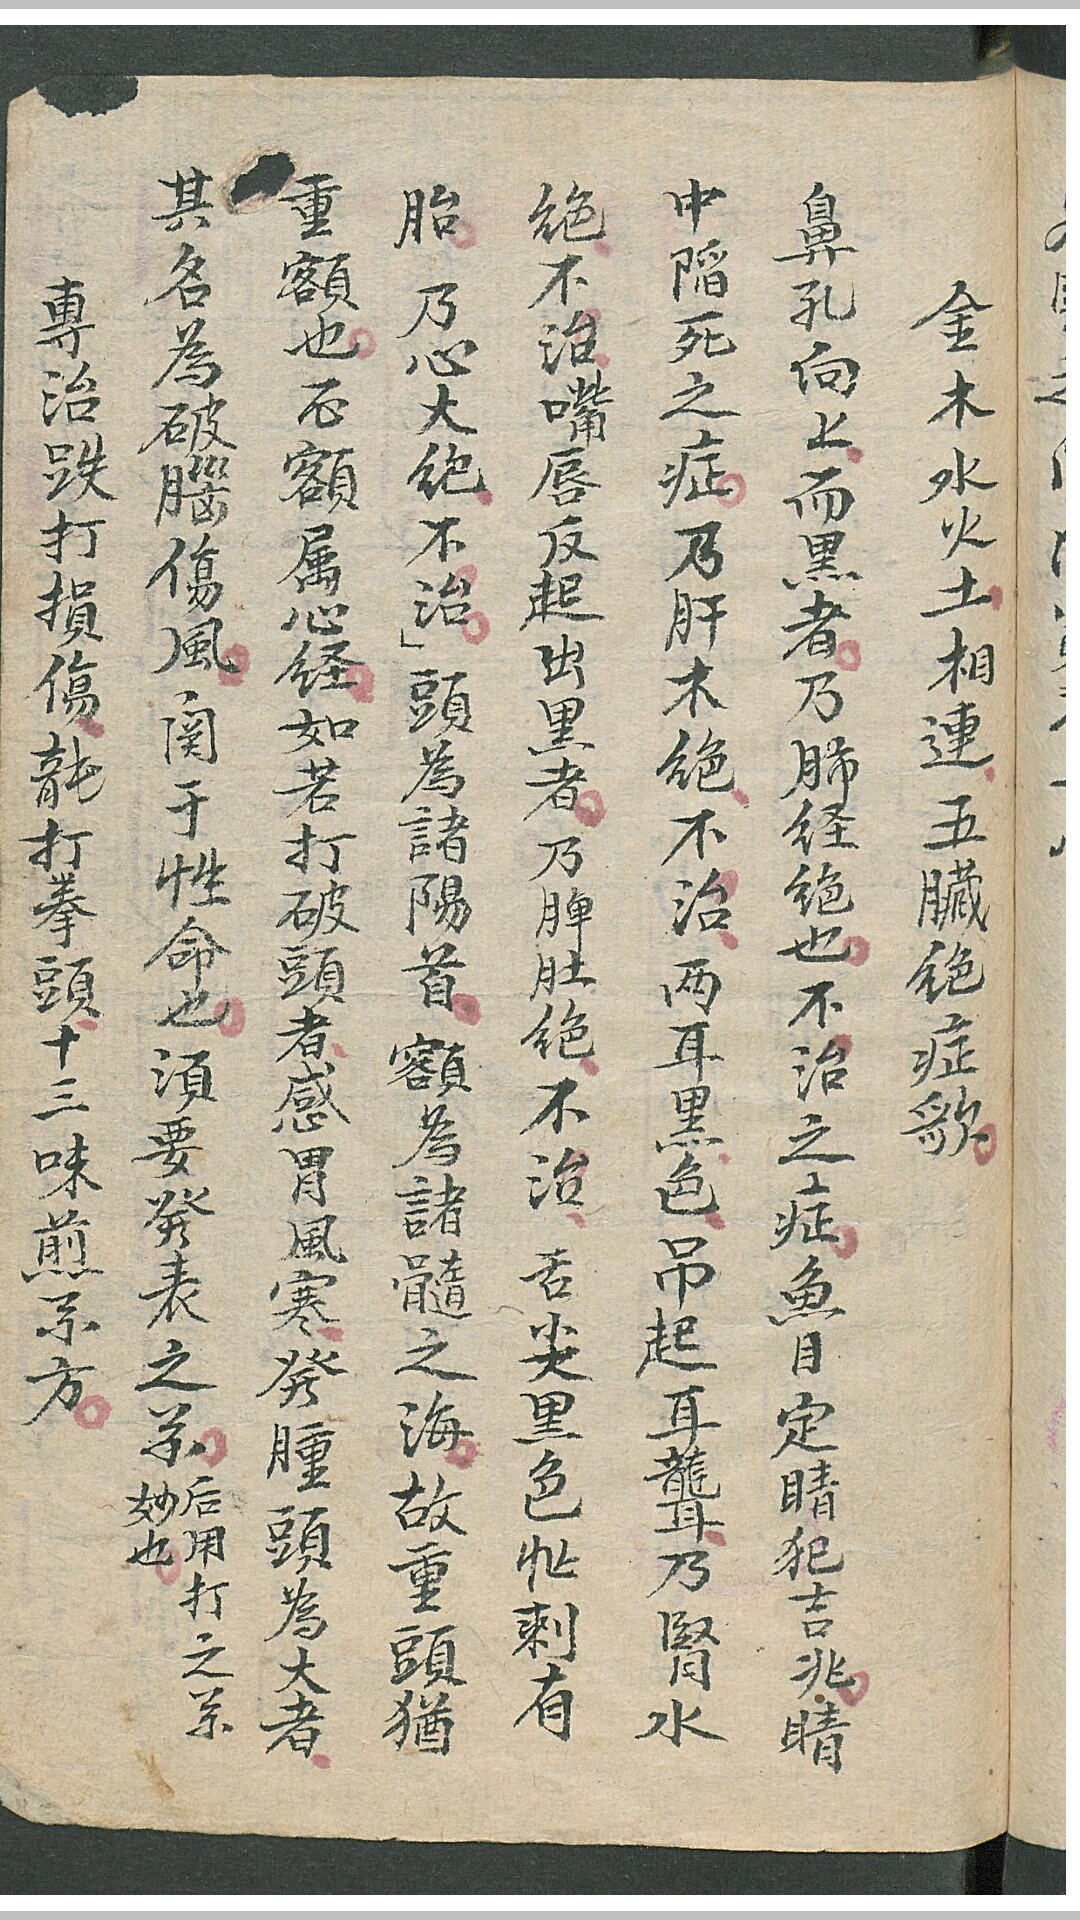 金木水火土相連五臟絕症歌
鼻孔向上而黑者乃肺经絕也不治之症魚目定睛犯吉兆睛
中陷死之症乃肝木絕不治两耳黑色吊起耳聾乃腎水
絕不治嘴唇反起出黑者乃脾肚绝不治舌尖黑色怍剌有
胎乃心大绝不治頭為諸陽首額為諸髓之海故重頭猶
重額也否額属心经如若打破頭者感胃風寒發腫頭為大者
其名為破腦傷風関于性命也須要發表之茶后用打之茶
妙也
專治跌打損傷 打拳頭十三味煎茶方